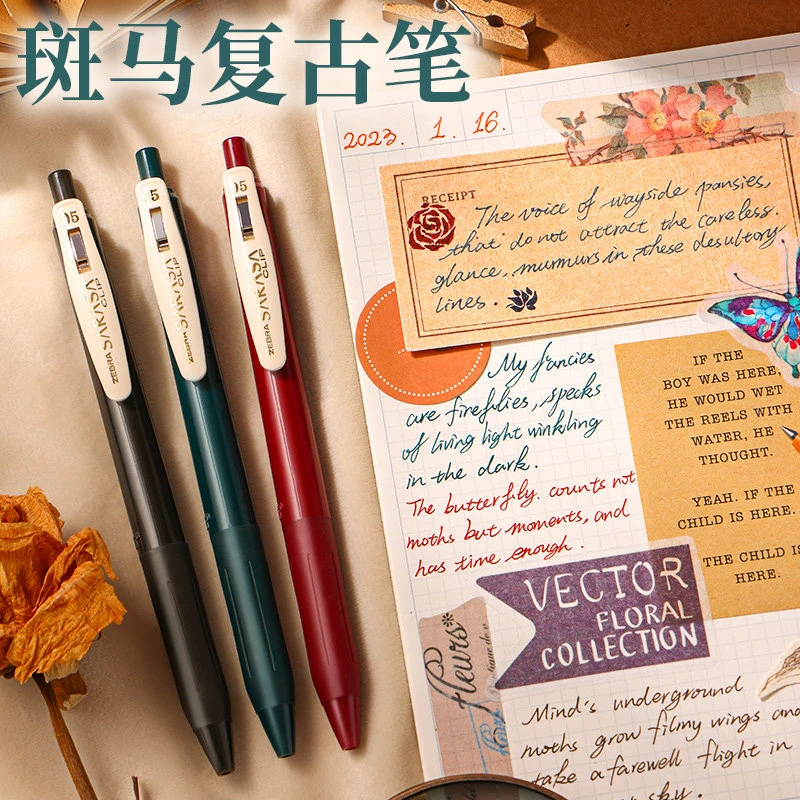 斑马复古笔
05
ZEBRA SARASA CLIP
5
ZEBRA SARASA CLIP
05
ZEBRA SARASA CLIP
2023. 1. 16.
RECEIPT
S
The voice of wayside pansies,
that do not attract the careless
glance, murmurs in these desultory
lines.
My fancies
are fireflies, specks
of living light winkling
in the dark.
The butterfly. counts not
moths but moments, and
has time enough.
IF THE
BOY WAS HERE,
HE WOULD WET
THE REELS WITH
WATER, HE
THOUGHT.
YEAH. IF THE
CHILD IS HERE.
THE CHILD IS
HERE.
VECTOR
FLORAL
COLLECTION
fleurs
Mind's underground
moths grow filmy wings and
take a farewell flight in
sky.